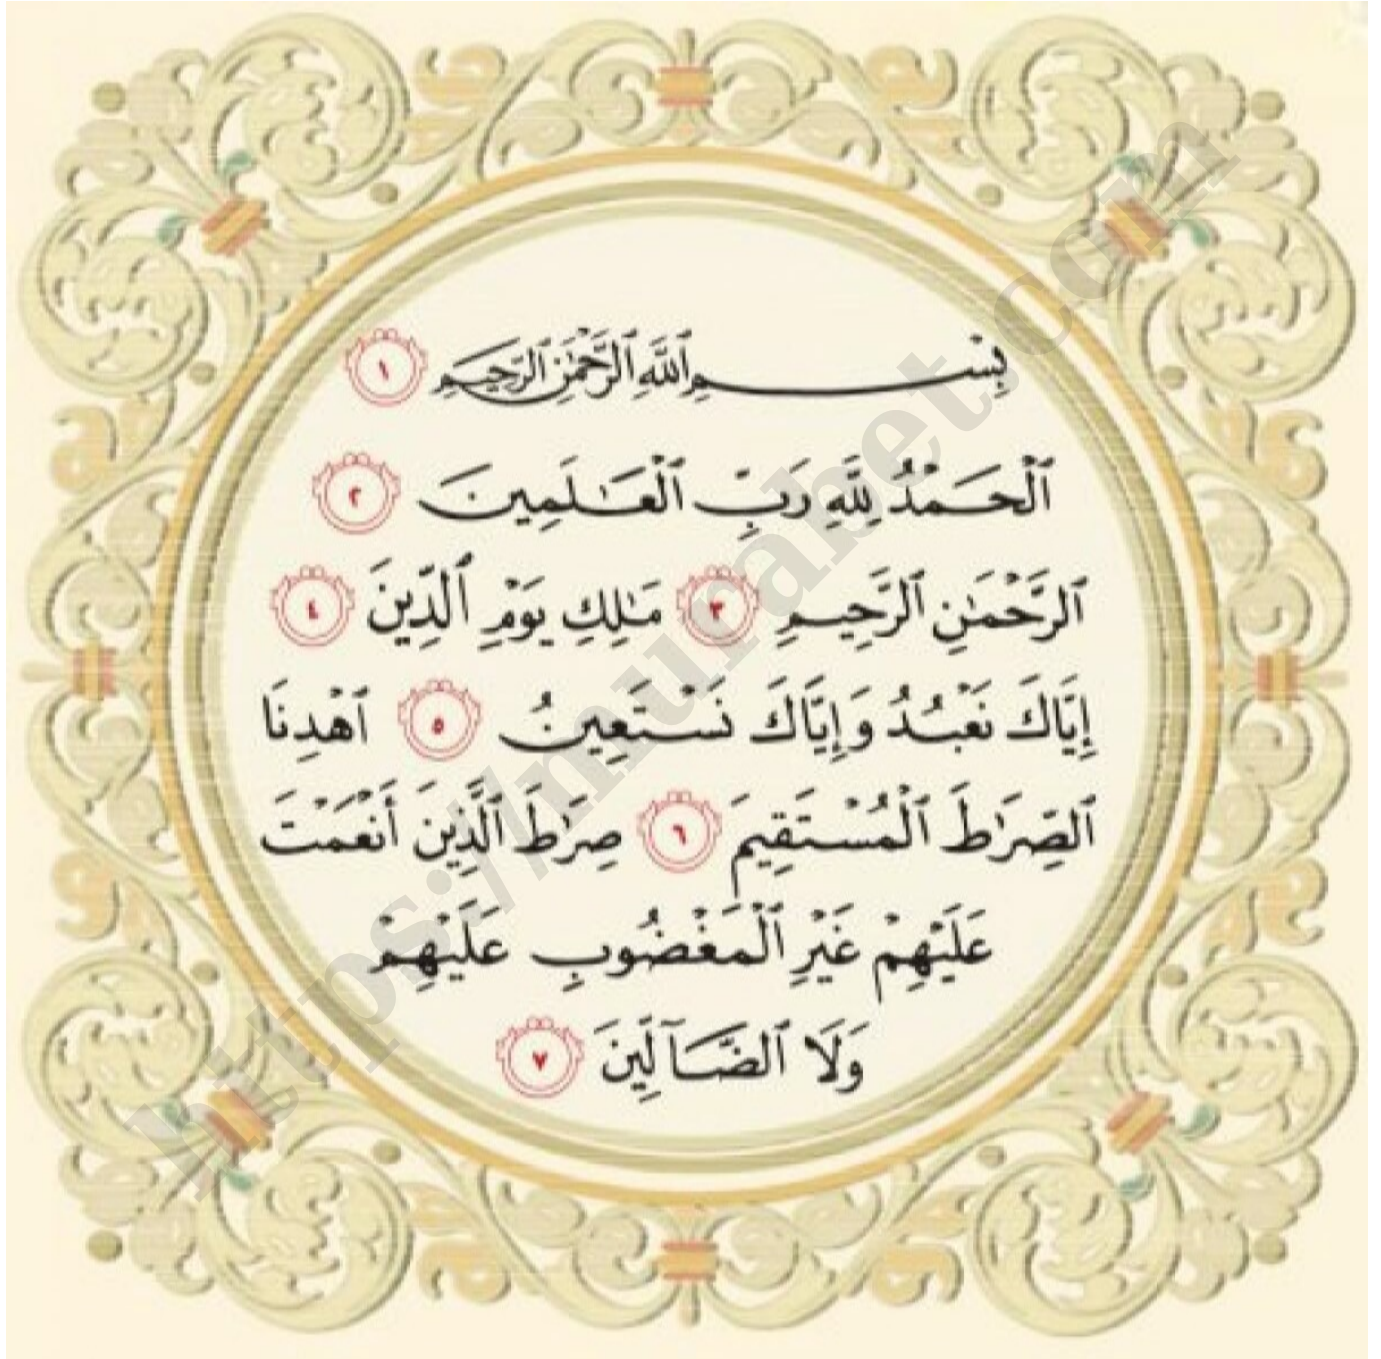 بِسْمِ ٱللَّهِ ٱلرَّحْمَٰنِ ٱلرَّحِيمِ ١
ٱلْحَمْدُ لِلَّهِ رَبِّ ٱلْعَٰلَمِينَ ٢
ٱلرَّحْمَٰنِ ٱلرَّحِيمِ ٣ مَٰلِكِ يَوْمِ ٱلدِّينِ ٤
إِيَّاكَ نَعْبُدُ وَإِيَّاكَ نَسْتَعِينُ ٥ ٱهْدِنَا
ٱلصِّرَٰطَ ٱلْمُسْتَقِيمَ ٦ صِرَٰطَ ٱلَّذِينَ أَنْعَمْتَ
عَلَيْهِمْ غَيْرِ ٱلْمَغْضُوبِ عَلَيْهِمْ
وَلَا ٱلضَّآلِّينَ ٧
https://murabet.com